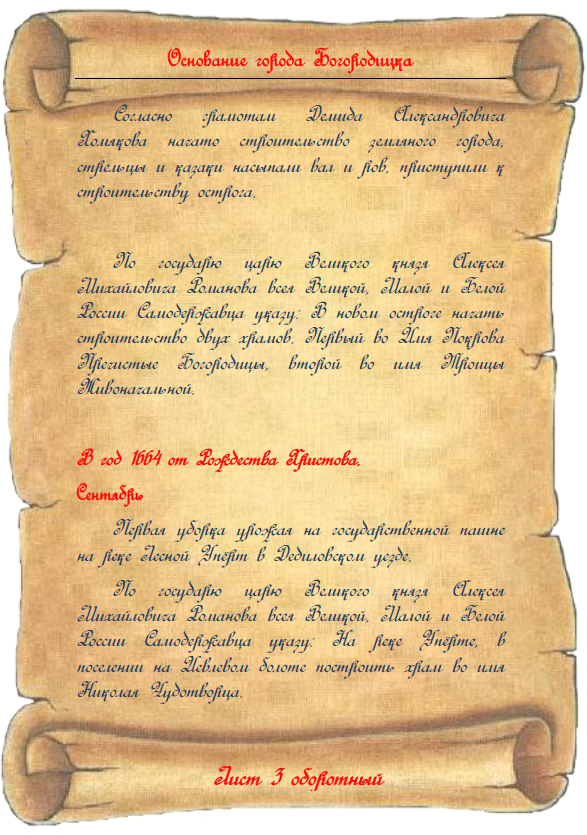 Основание города Богородицка
Согласно грамотам Демида Александровича
Хомякова начато строительство земляного города,
стрельцы и казаки насыпали вал и ров, приступили к
строительству острога.
По государю царю Великого князя Алексея
Михайловича Романова всея Великой, Малой и Белой
России Самодержавца указу: В новом остроге начать
строительство двух храмов. Первый во Имя Покрова
Пречистые Богородицы, второй во имя Троицы
Живоначальной.
В год 1664 от Рождества Христова.
Сентябрь
Первая уборка урожая на государственной пашне
на реке Лесной Упёрт в Дедиловском уезде.
По государю царю Великого князя Алексея
Михайловича Романова всея Великой, Малой и Белой
России Самодержавца указу: На реке Упёрте, в
поселении на Иевлевом болоте построить храм во имя
Николая Чудотворца.
Лист 3 оборотный